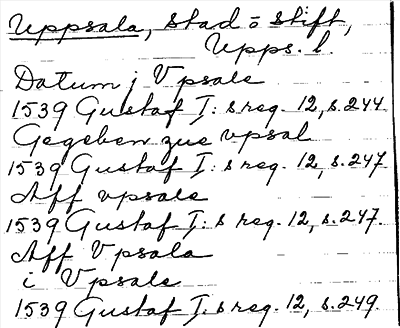 Uppsala, stad o stift,
Upps. l.
Datum j Vpsale
1539 Gustaf I: s reg. 12, s. 244
Gegeben zue vpsal
1539 Gustaf I: s reg. 12, s. 247
Aff vpsale
1539 Gustaf I: s reg. 12, s. 247.
Aff Vpsala
i Vpsale
1539 Gustaf I. s reg. 12, s. 249